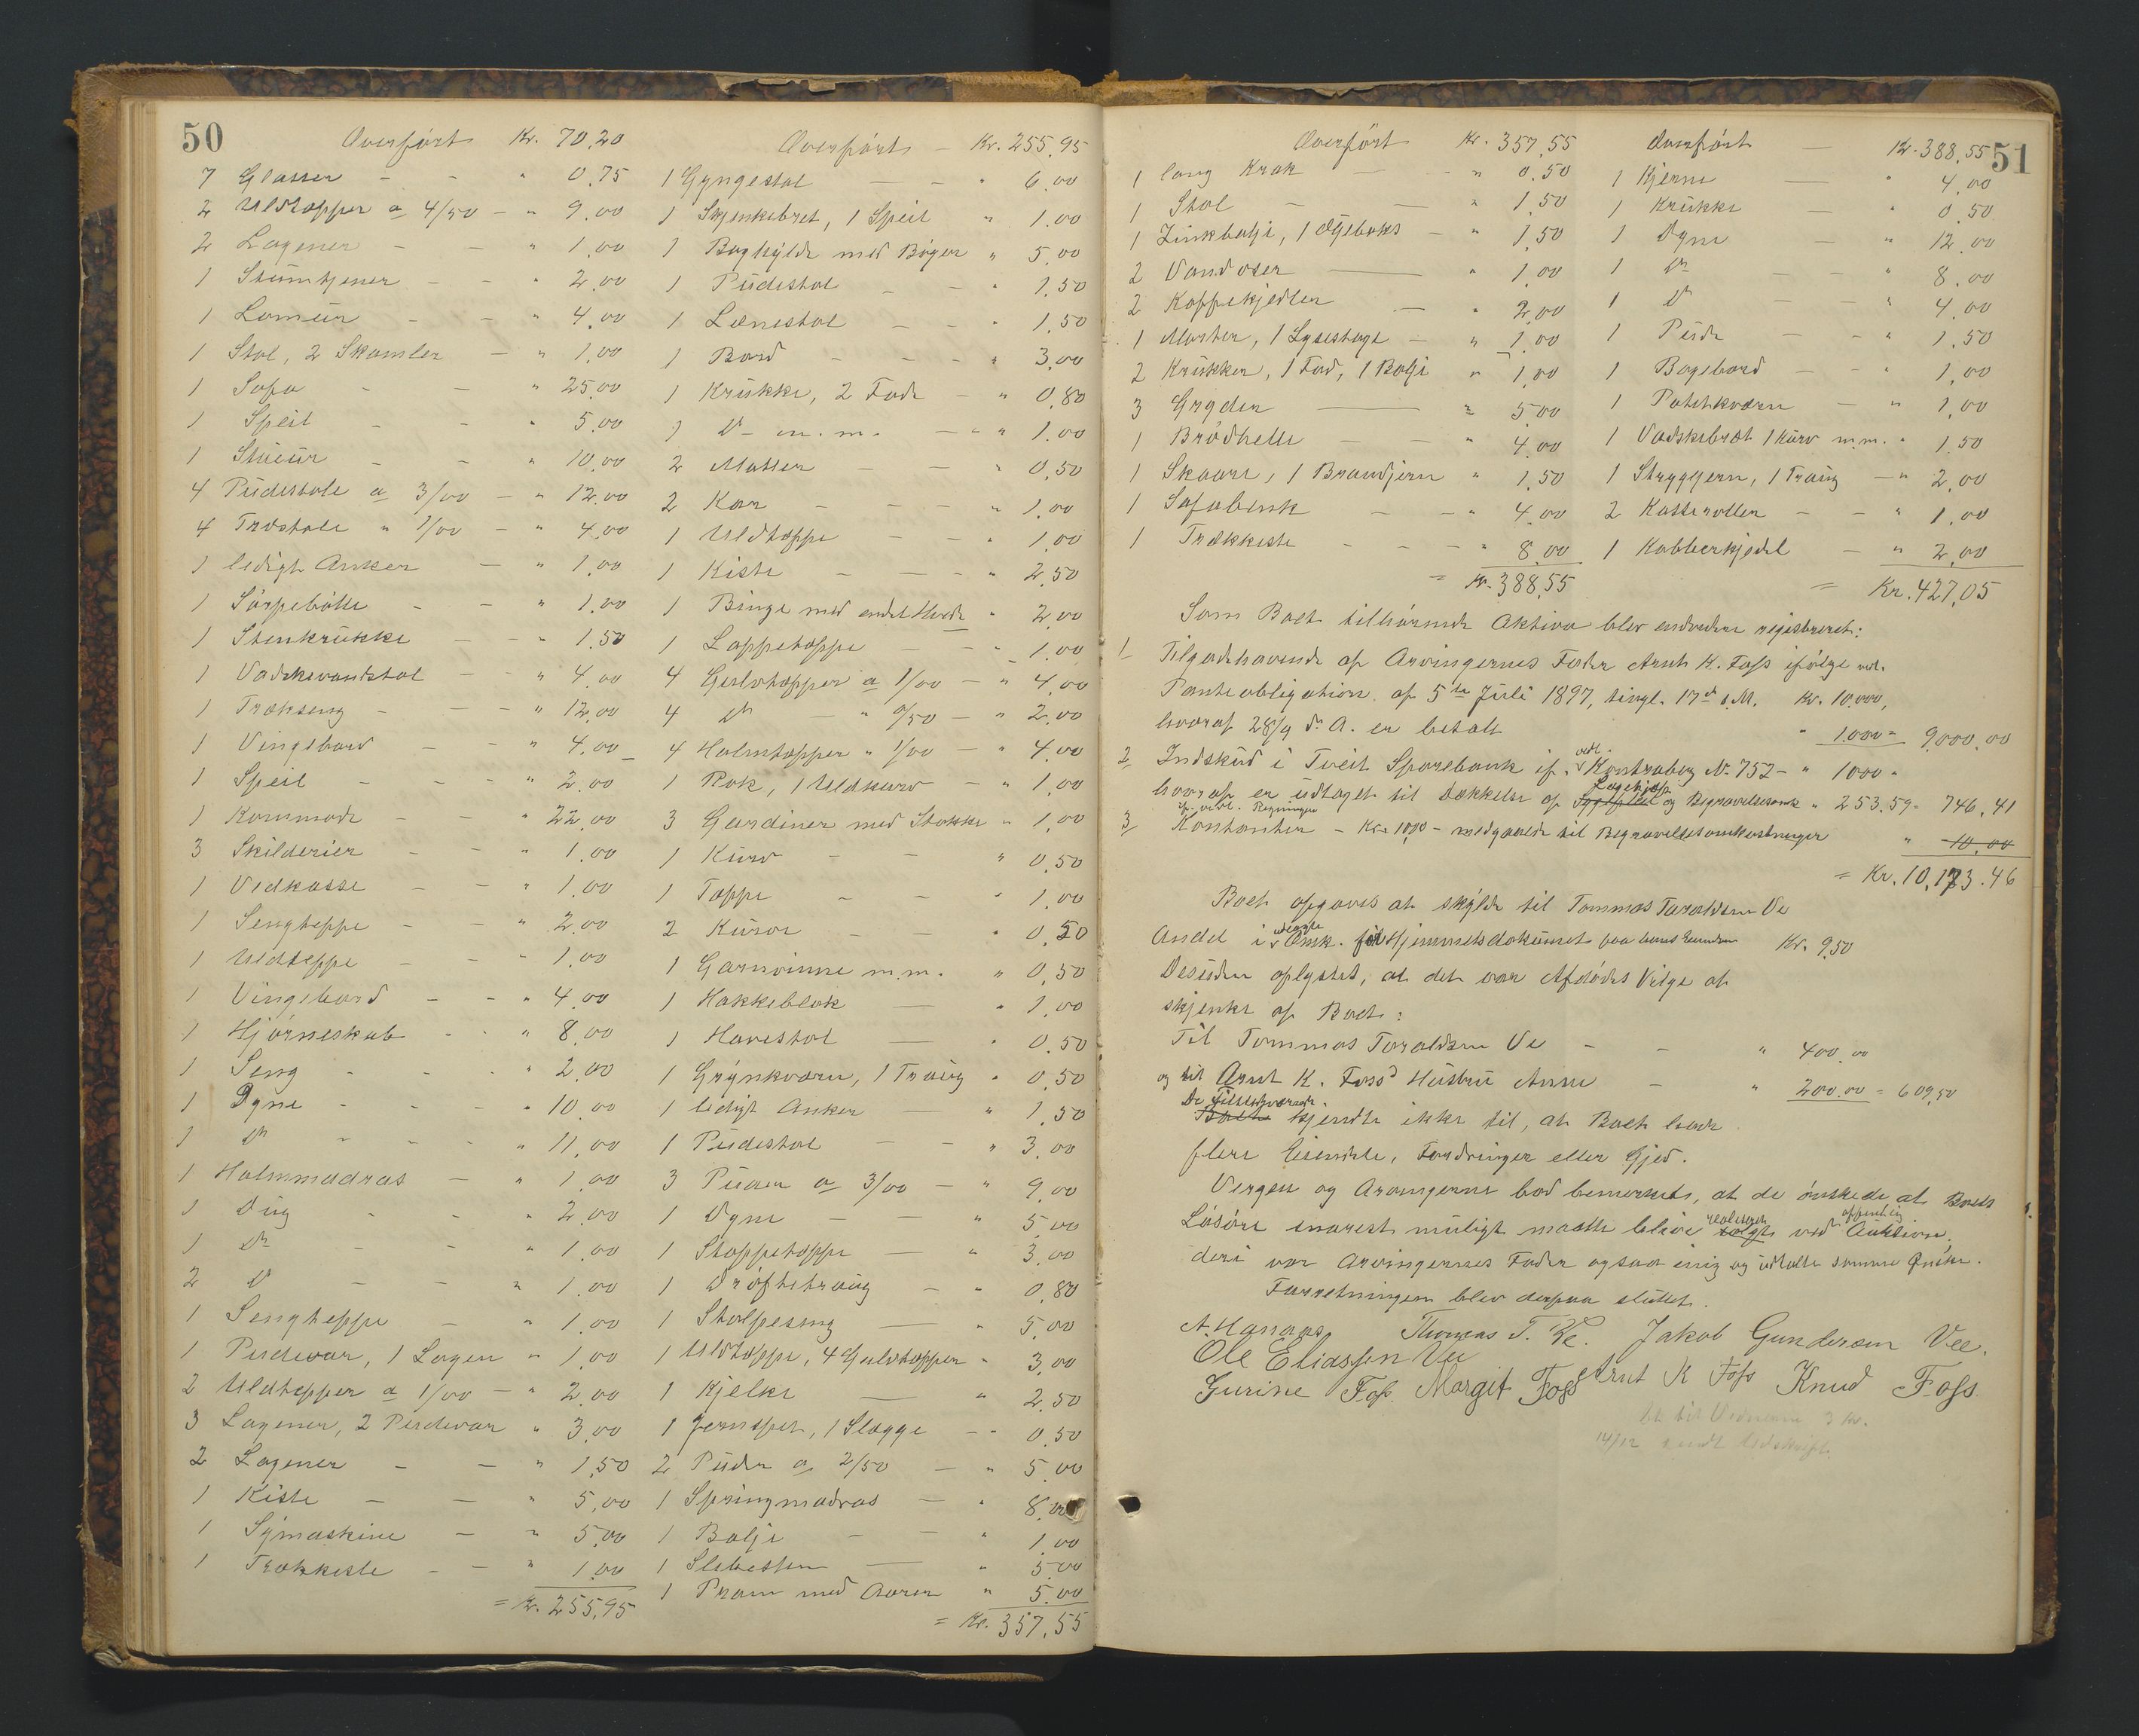 50
Overført Kr. 70,20
7 Glasser - - " 0,75
2 Uldtæpper a 4/50 - " 9,00
2 Lagener - - " 1,00
1 Stumtjener - - " 2,00
1 Lomeur - - " 4,00
1 Stol, 2 Skamler - " 1,00
1 Sofa - - " 25,00
1 Speil - - " 5,00
1 Stueur - - " 10,00
4 Pudestole a 3/00 - " 12,00
4 Træstole " 1/00 - " 4,00
1 ledigt Anker - " 1,00
1 Sørpebøtte - - " 1,00
1 Stenkrukke - - " 1,50
1 Vadskevandstol - - " 4,00
1 Trækseng - - " 12,00
1 Vingebord - - " 4,00
1 Speil - - - " 2,00
1 Kommode - - " 22,00
3 Skilderier - - " 1,00
1 Vedkasse - - " 1,00
1 Sengteppe - - " 2,00
1 Uldteppe - - " 1,00
1 Vingebord - - " 4,00
1 Hjørneskab - - " 8,00
1 Seng - - - " 2,00
1 Dyne - - - " 10,00
1 Do - - - " 11,00
1 Halmmadras - " 1,00
1 Dug - - - " 2,00
1 Do - - - " 1,00
2 Do - - - " 1,00
1 Sengteppe - " 1,00
1 Pudevar, 1 Lagen " 1,00
2 Uldtepper a 1/00 - " 2,00
3 Lagener, 2 Pudevar " 3,00
2 Lagener - - " 1,50
1 Kiste - - " 5,00
1 Symaskine - " 5,00
1 Trækkiste - - " 1,00
= Kr. 255,95
Overført - Kr. 255,95
1 Gyngestol - - " 6,00
1 Skjenkebret, 1 Speil " 1,00
1 Boghylde med Bøger " 5,00
1 Pudestol - - " 1,50
1 Lænestol - - " 1,50
1 Bord - - - " 3,00
1 Krukke, 2 Fade - " 0,80
1 Do m. m. - - " 1,00
2 Matter - - " 0,50
2 Kar - - - " 1,00
1 Uldtæppe - - " 1,00
1 Kiste - - - " 2,50
1 Binge med endel " 2,00
1 Lappetæppe - - 1,00
4 Gulvtæpper a 1/00 - " 4,00
4 Do - " 0/50 - " 2,00
4 Halmtæpper " 1/00 - " 4,00
1 Rok, 1 Uldkurv - " 1,00
3 Gardiner med Stokke " 1,00
1 Kurv - - " 0,50
1 Tæppe - - - 1,00
2 Kurve - - " 0,50
1 Garnvinne m.m. " 0,50
1 Hakkeblok - " 1,00
1 Havestol - " 0,50
1 Grynkværn, 1 Traug " 0,50
1 ledigt Anker - " 1,50
1 Pudestol - - " 3,00
3 Puder a 3/00 - " 9,00
1 Dyne - - " 5,00
1 Stoppetæppe - " 3,00
1 Drøftetraug - " 0,80
1 Stolpeseng - " 5,00
1 Uldtæppe, 4 Gulvtæpper " 3,00
1 Kjelke - " 2,50
1 Jernspet, 1 Slægge - " 0,50
2 Puder a 2/50 - " 5,00
1 Springmadras - " 8,00
1 Balje - - " 1,00
1 Slebesten - " 5,00
1 Pram med Aarer " 5,00
= Kr. 357,55
51
Overført Kr. 357,55
1 lang Krak - - " 0,50
1 Stol - - " 1,50
1 Zinkbalje, 1 - " 1,50
2 Vandøser - " 1,00
2 Kaffekjedler - " 2,00
1 Morter, 1 Lysestage - " 1,00
2 Krukker, 1 Fad, 1 Balje " 1,00
3 Gryder - " 5,00
1 Brødhelle - - " 4,00
1 Skaare, 1 Brandjern " 1,50
1 Sofabenk - - " 4,00
1 Trækkiste - - - " 8,00
= Kr. 388,55
Overført - Kr. 388,55
1 Kjerne - " 4,00
1 Krukke - " 0,50
1 Dyne - " 12,00
1 Do - - " 8,00
1 Do - - " 4,00
1 Pude - - " 1,50
1 Bagebord - - " 1,00
1 Potetkværn - " 1,00
1 Vadskebræt 1 Kurv m.m. " 1,50
1 Strygejern, 1 Traug - " 2,00
2 Kasseroller - - " 1,00
1 Kobberkjedel - " 2,00
= Kr. 427,05
Som Boet tilhørende Aktiva blev endvidere registreret:
1, Tilgodehavende af Arvingernes Fader Arnt K. Foss ifølge vedl.
Panteobligation af 5te Juli 1897, tingl. 17d s.M. Kr. 10.000,
hvoraf 28/9 d. A. er betalt " 1.000 - 9,000,00
2, Indskud i Tveit Sparebank if. vedl. Kontrabog No 752 - " 1000 "
hvoraf er udtaget til Dækkelse af Lægehjælp og Begravelsesomk " 253.59 - 746,41
if. vedl. Regninger
3, Kontanter - Kr. 10,00 - medgaaede til Begravelsesomkostninger " 10,00
= Kr. 10,173.46
Boet opgaves at skylde til Tommas Taraldsen Ve
Andel i Omk. for Hjemmelsdokument paa hans Eiendom Kr. 9,50
Desuden oplystes, at det var Afdødes Vilje at
skjenke af Boet:
Til Tommas Taraldsen Ve - - " 400,00
og til Arnt K. Foss' Hustru Anne - " 200,00 = 609,50
De Tilstedeværende kjendte ikke til, at Boet havde
flere Eiendele, Fordringer eller Gjæld.
Vergen og Arvingerne bad bemerket, at de ønskede at Boets
Løsøre snarest muligt maatte blive realiseret ved offentlig Auktion,
deri var Arvingernes Fader ogsaa enig og udtalte samme Ønske.
Forretningen blev derpaa sluttet.
Thomas T. Ve. Jakob Gundersen Vee.
Ole Eliassen Vee
Gurine Foss. Margit Foss Arnt K Foss Knud Foss.
14/12